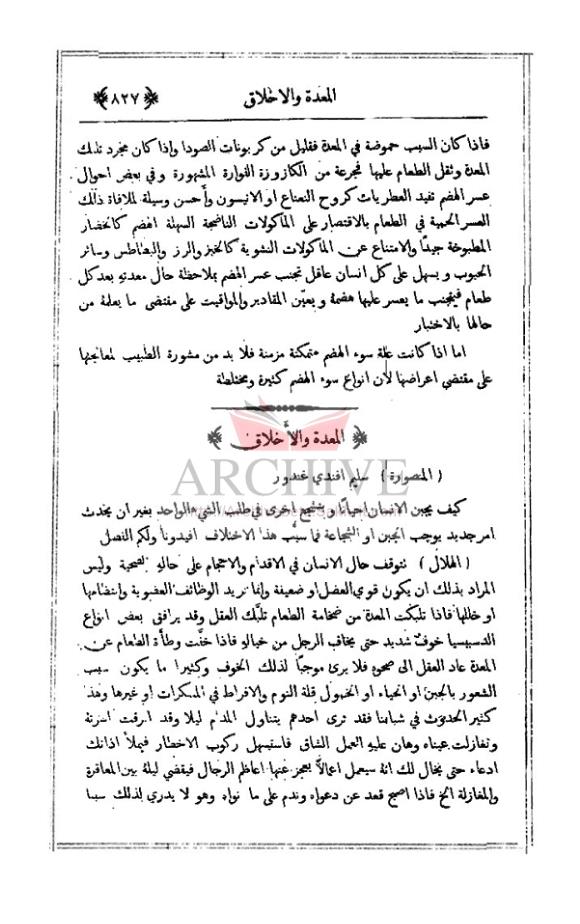 المعدة والاخلاق ﴿ ٨٢٧ ﴾
فاذا كان السبب حموضة في المعدة فقليل من كربونات الصودا واذا كان مجرد تلبك
المعدة وثقل الطعام عليها فجرعة من الكازوزة الفوارة المشهورة وفي بعض احوال
عسر الهضم تفيد العطريات كروح النعناع او الانيسون وأحسن وسيلة لملافاة ذلك
العسر الحمية في الطعام بالاقتصار على المأكولات الناضجة السهلة الهضم كالخضار
المطبوخة جيدًا والامتناع عن المأكولات النشوية كالخبز والرز والبطاطس وسائر
الحبوب ويسهل على كل انسان عاقل تجنب عسر الهضم بملاحظة حال معدته بعد كل
طعام فيتجنب ما يعسر عليها هضمة ويعيّن المقادير والمواقيت على مقتضى ما يعلمة من
حالها بالاختبار
اما اذا كانت علة سوء الهضم متمكنة مزمنة فلا بد من مشورة الطبيب لمعالجتها
على مقتضى اعراضها لأن انواع سوء الهضم كثيرة ومختلطة
﴿ المعدة والأخلاق ﴾
ARCHIVE
( المنصورة ) سليم افندي غندور
كيف يجبن الانسان احيانًا ويتشجع اخرى في طلب الشيء الواحد بغير ان يحدث
امر جديد يوجب الجبن او الشجاعة فما سبب هذا الاختلاف افيدونا ولكم الفضل
( الهلال ) تتوقف حال الانسان في الاقدام والاحجام على حالهِ الصحية وليس
المراد بذلك ان يكون قوي العضل او ضعيفة وانما نريد الوظائف العضوية وانتظامها
او خللها فاذا تلبكت المعدة من ضخامة الطعام تلبّك العقل وقد يرافق بعض انواع
الدسبيسيا خوفٌ شديد حتى يخاف الرجل من خيالهِ فاذا خفّت وطأة الطعام عن
المعدة عاد العقل الى صحوهِ فلا يرى موجبًا لذلك الخوف وكثيرًا ما يكون سبب
الشعور بالجبن او الحياء او الخمول قلة النوم والافراط في المسكرات او غيرها وهذا
كثير الحدوث في شباننا فقد ترى احدهم يتناول المدام ليلًا وقد ابرقت اسرتهُ
وتغازلت عيناه وهان عليهِ العمل الشاق فاستسهل ركوب الاخطار فيملأ اذانك
ادعاء حتى يخال لك انهُ سيعمل اعمالًا يعجز عنها اعاظم الرجال فيقضي ليلهُ بين المعاقرة
والمغازلة الخ فاذا اصبح قعد عن دعواه وندم على ما نواه وهو لا يدري لذلك سببًا